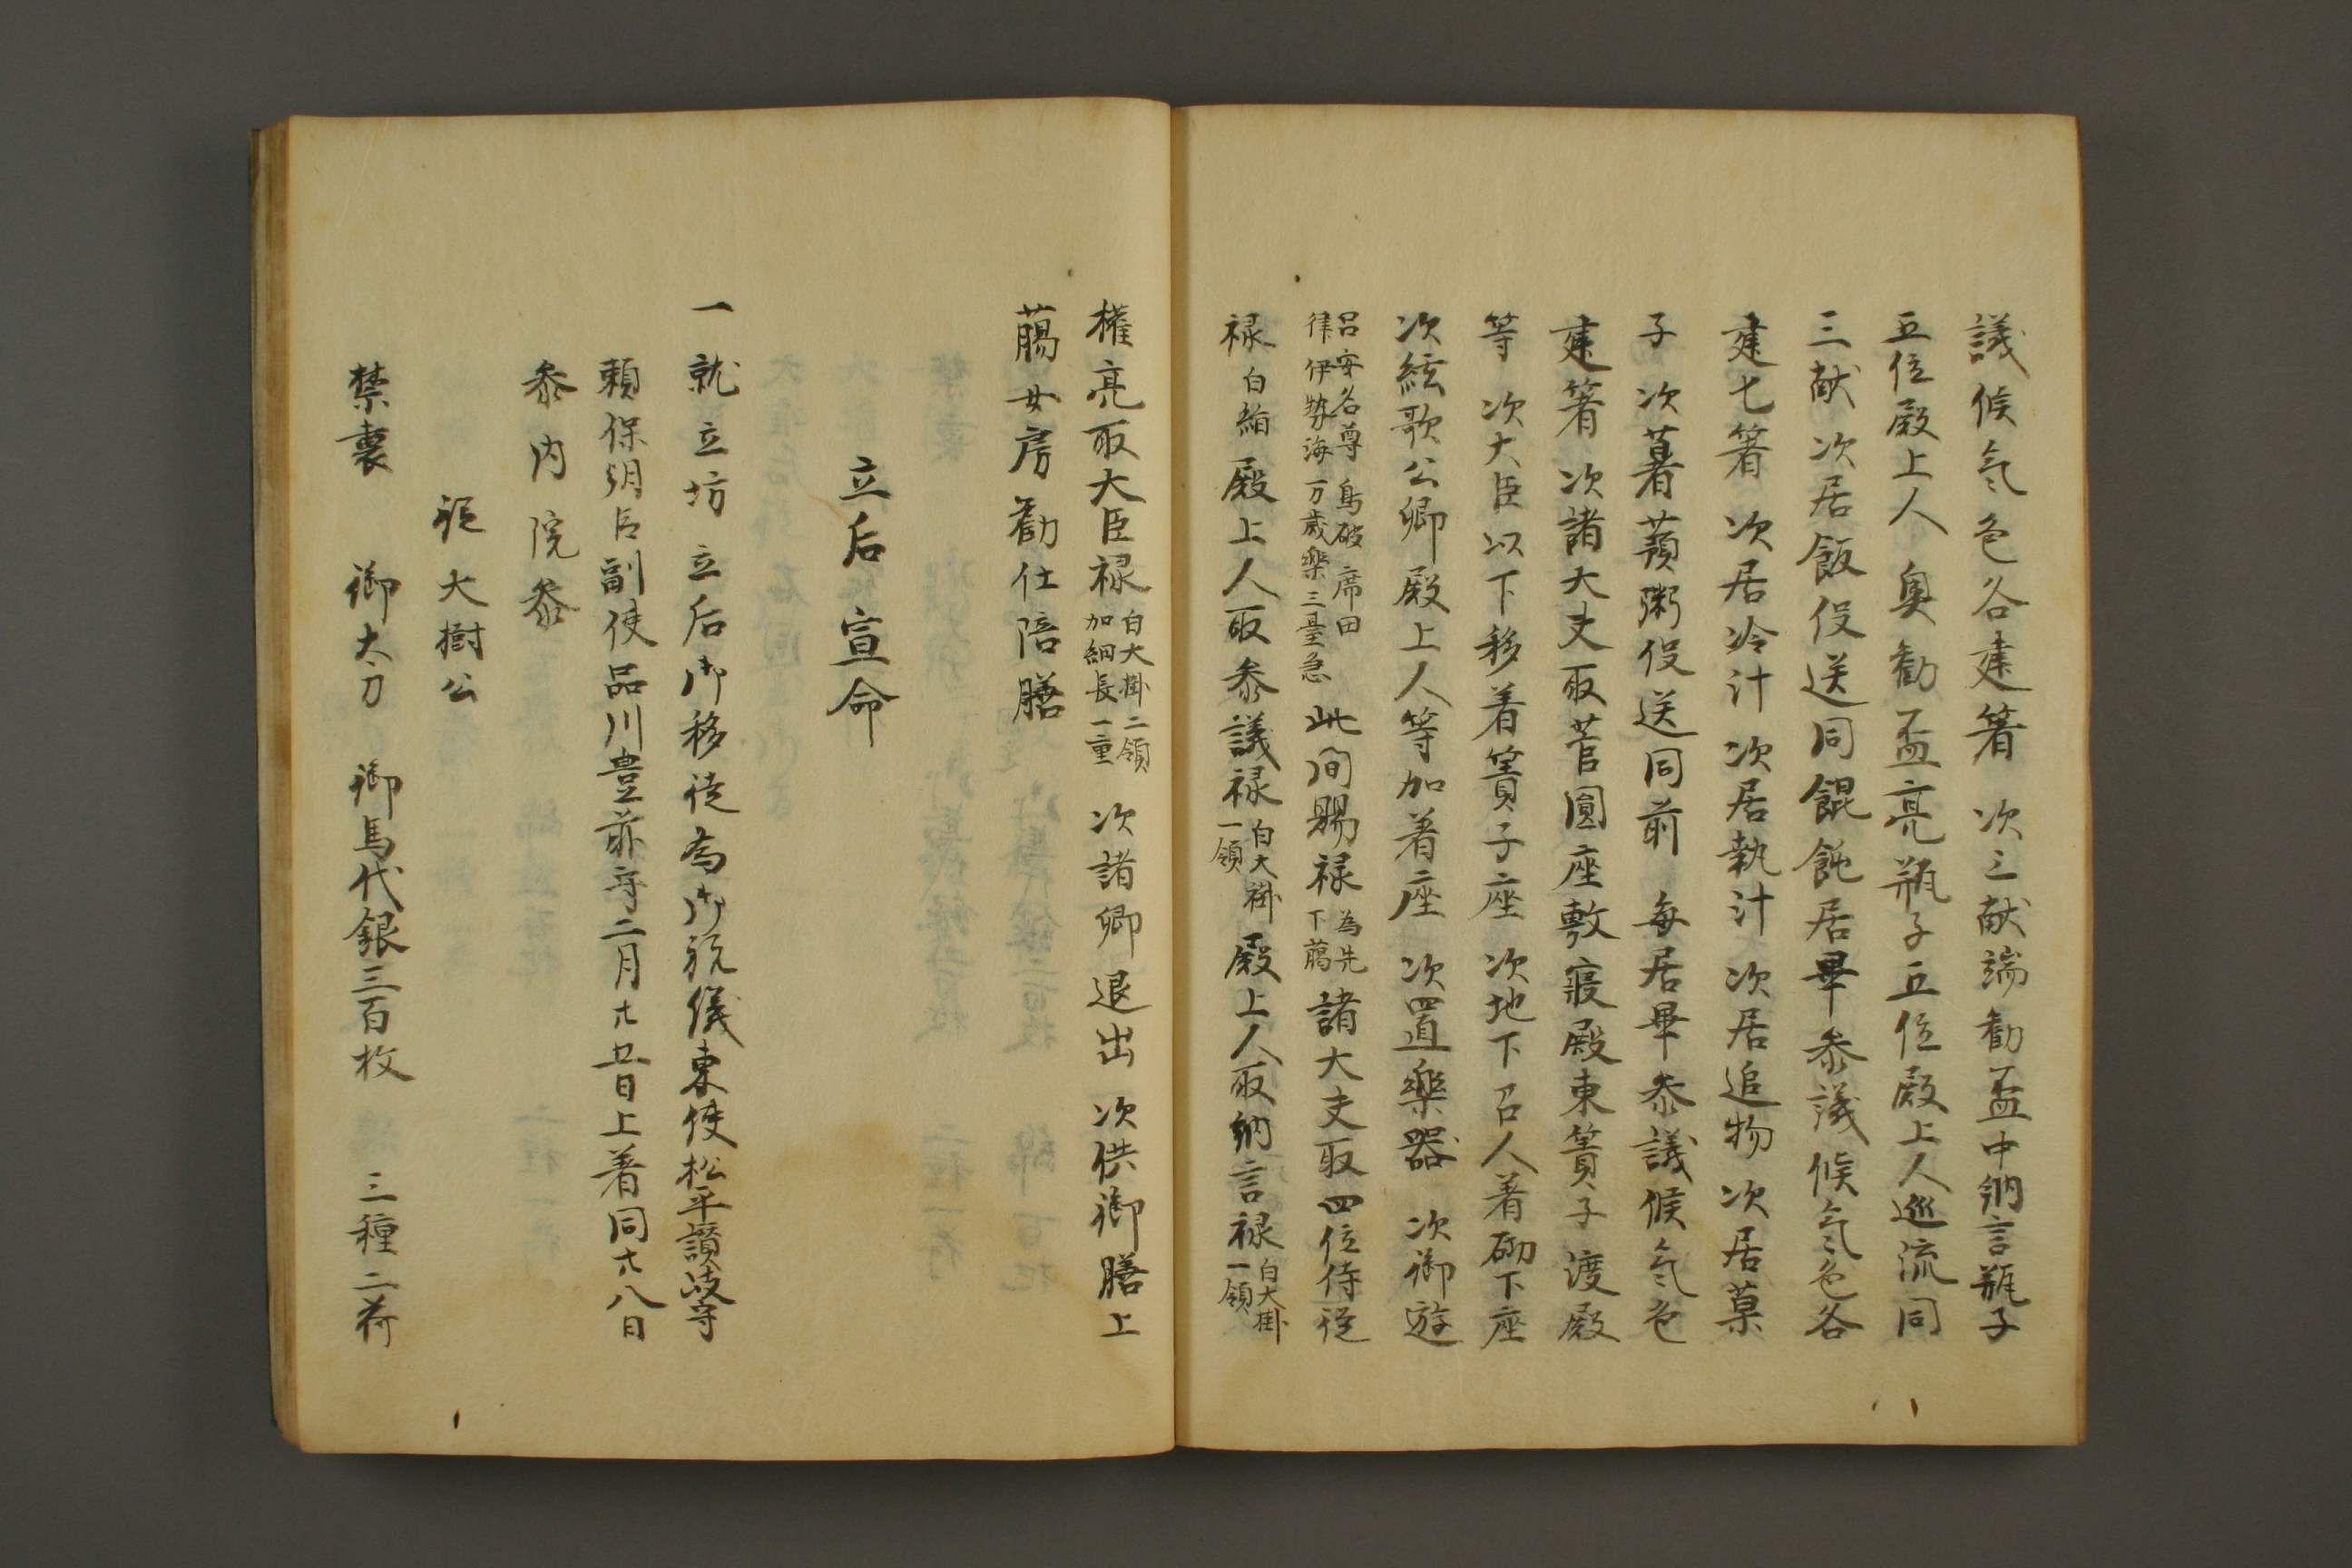 議候气色各建箸　次三献端勧盃中納言瓶子
五位殿上人　奥勧盃亮瓶子五位殿上人巡流同
三献　次居飯役送同餛飩居畢参議候气色各
建七箸　次居冷汁　次居熱汁　次居追物　次居菓
子　次署蕷粥役送同前　毎居畢参議候气色
建箸　次諸大夫取菅圓座敷寝殿東簀子渡殿
等　次大臣以下移着簀子座　次地下召人着砌下座
次絃歌公卿殿上人等加着座　次置楽器　次御遊
呂安名尊　鳥破　席田
律伊勢海　万歳樂　三臺急　此間賜禄
為先
下﨟　諸大夫取四位侍従
禄白絹　殿上人取参議禄白大褂
一領　殿上人取納言禄白大掛
一領
権亮取大臣禄白大掛二領
加細長一重　次諸卿退出　次供御膳上
﨟女房勤仕陪膳
立后宣命
一就立坊　立后御移徒為御祝儀東使松平讃岐守
頼保朝臣副使品川豊前守二月廿五日上着同廿八日
参内　院参
従大樹公
禁裏　御太刀　御馬代銀三百枚　三種二荷